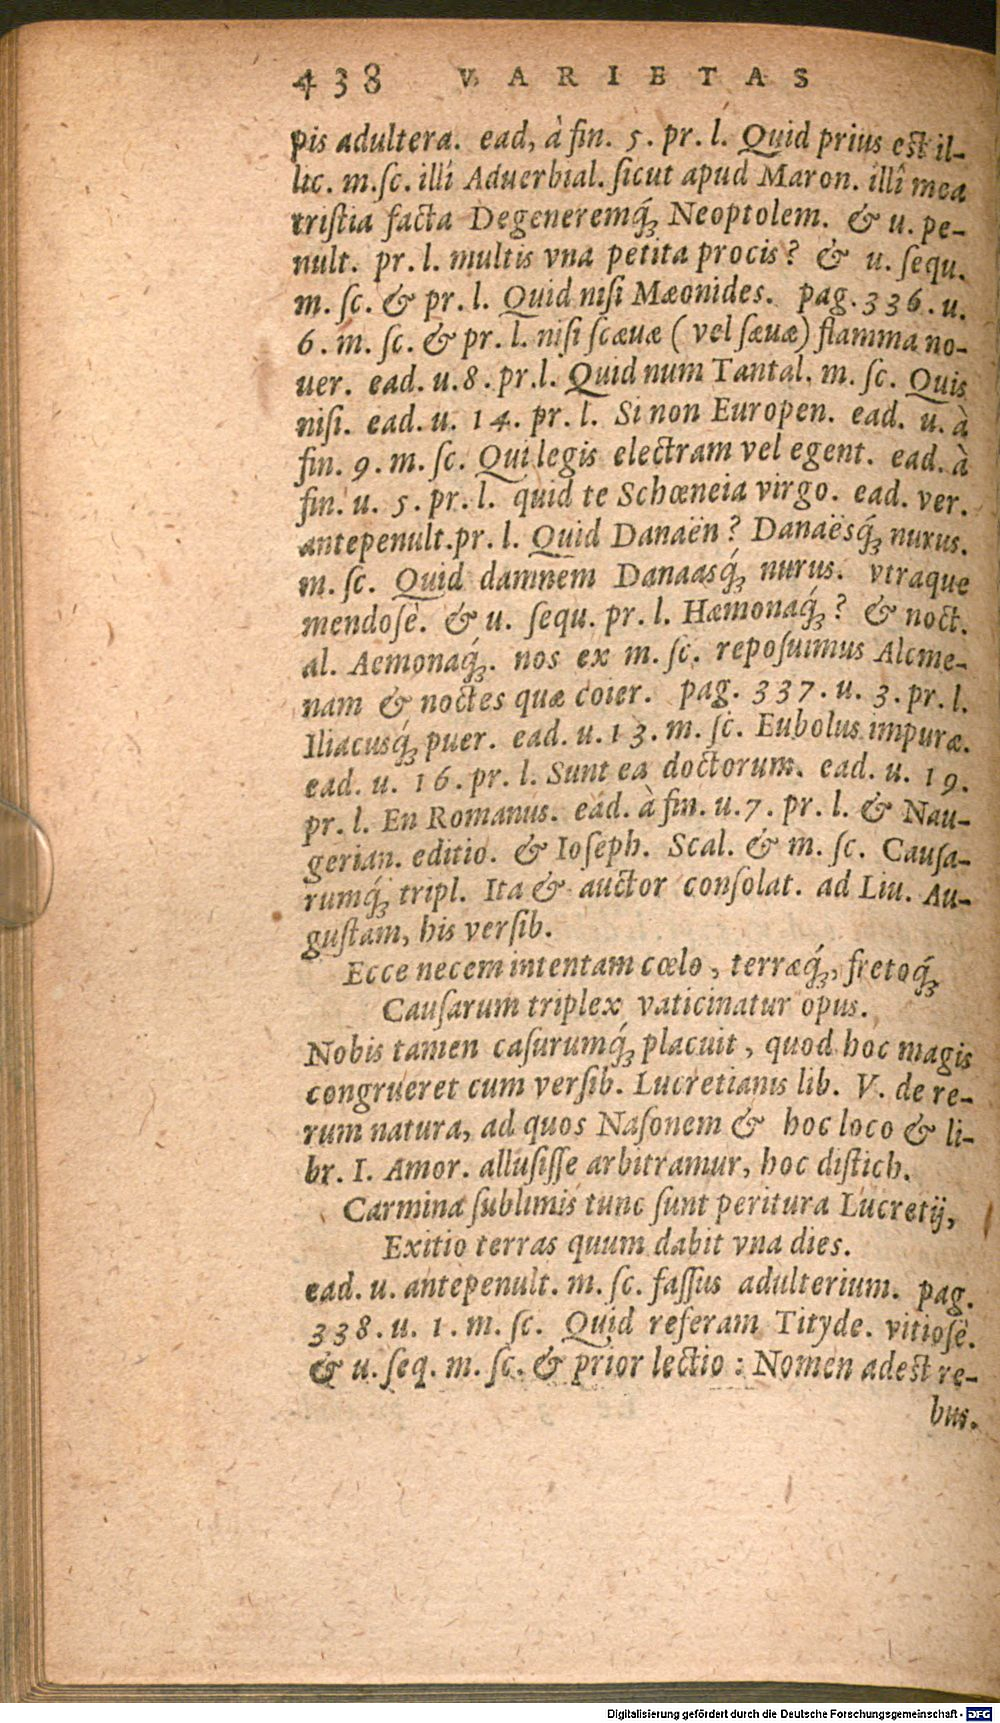 438 VARIETAS
pis adultera. ead, à fin. 5. pr. l. Quid prius est il-
lic. m. sc. illi Aduerbial. sicut apud Maron. illî mea
tristia facta Degeneremq́ꝫ Neoptolem. & u. pe-
nult. pr. l. multis vna petita procis? & u. sequ.
m. sc. & pr. l. Quid nisi Mæonides. pag. 336. u.
6. m. sc. & pr. l. nisi scæuæ (vel sæuæ) flamma no-
uer. ead. u. 8. pr. l. Quid num Tantal. m. sc. Quis
nisi. ead. u. 14. pr. l. Si non Europen. ead. u. à
fin. 9. m. sc. Qui legis electram vel egent. ead. à
fin. u. 5. pr. l. quid te Schœneia virgo. ead. ver.
antepenult. pr. l. Quid Danaën? Danaësq́ꝫ nurus.
m. sc. Quid damnem Danaasq́ꝫ nurus. vtraque
mendosè. & u. sequ. pr. l. Hæmonaq́ꝫ? & noct.
al. Aemonaq́ꝫ. nos ex m. sc. reposuimus Alcme-
nam & noctes quæ coier. pag. 337. u. 3. pr. l.
Iliacusq́ꝫ puer. ead. u. 13. m. sc. Eubolus impuræ.
ead. u. 16. pr. l. Sunt ea doctorum. ead. u. 19.
pr. l. En Romanus. ead. à fin. u. 7. pr. l. & Nau-
gerian. editio. & Ioseph. Scal. & m. sc. Causa-
rumq́ꝫ tripl. Ita & auctor consolat. ad Liu. Au-
gustam, his versib.
Ecce necem intentam cœlo, terræq́ꝫ, fretoq́ꝫ
Causarum triplex vaticinatur opus.
Nobis tamen casurumq́ꝫ placuit, quod hoc magis
congrueret cum versib. Lucretianis lib. V. de re-
rum natura, ad quos Nasonem & hoc loco & li-
br. I. Amor. allusisse arbitramur, hoc distich.
Carmina sublimis tunc sunt peritura Lucretij,
Exitio terras quum dabit vna dies.
ead. u. antepenult. m. sc. fassus adulterium. pag.
338. u. 1. m. sc. Quid referam Tityde. vitiosè.
& u. seq. m. sc. & prior lectio: Nomen adest re-
bus.
Digitalisierung gefördert durch die Deutsche Forschungsgemeinschaft - DFG